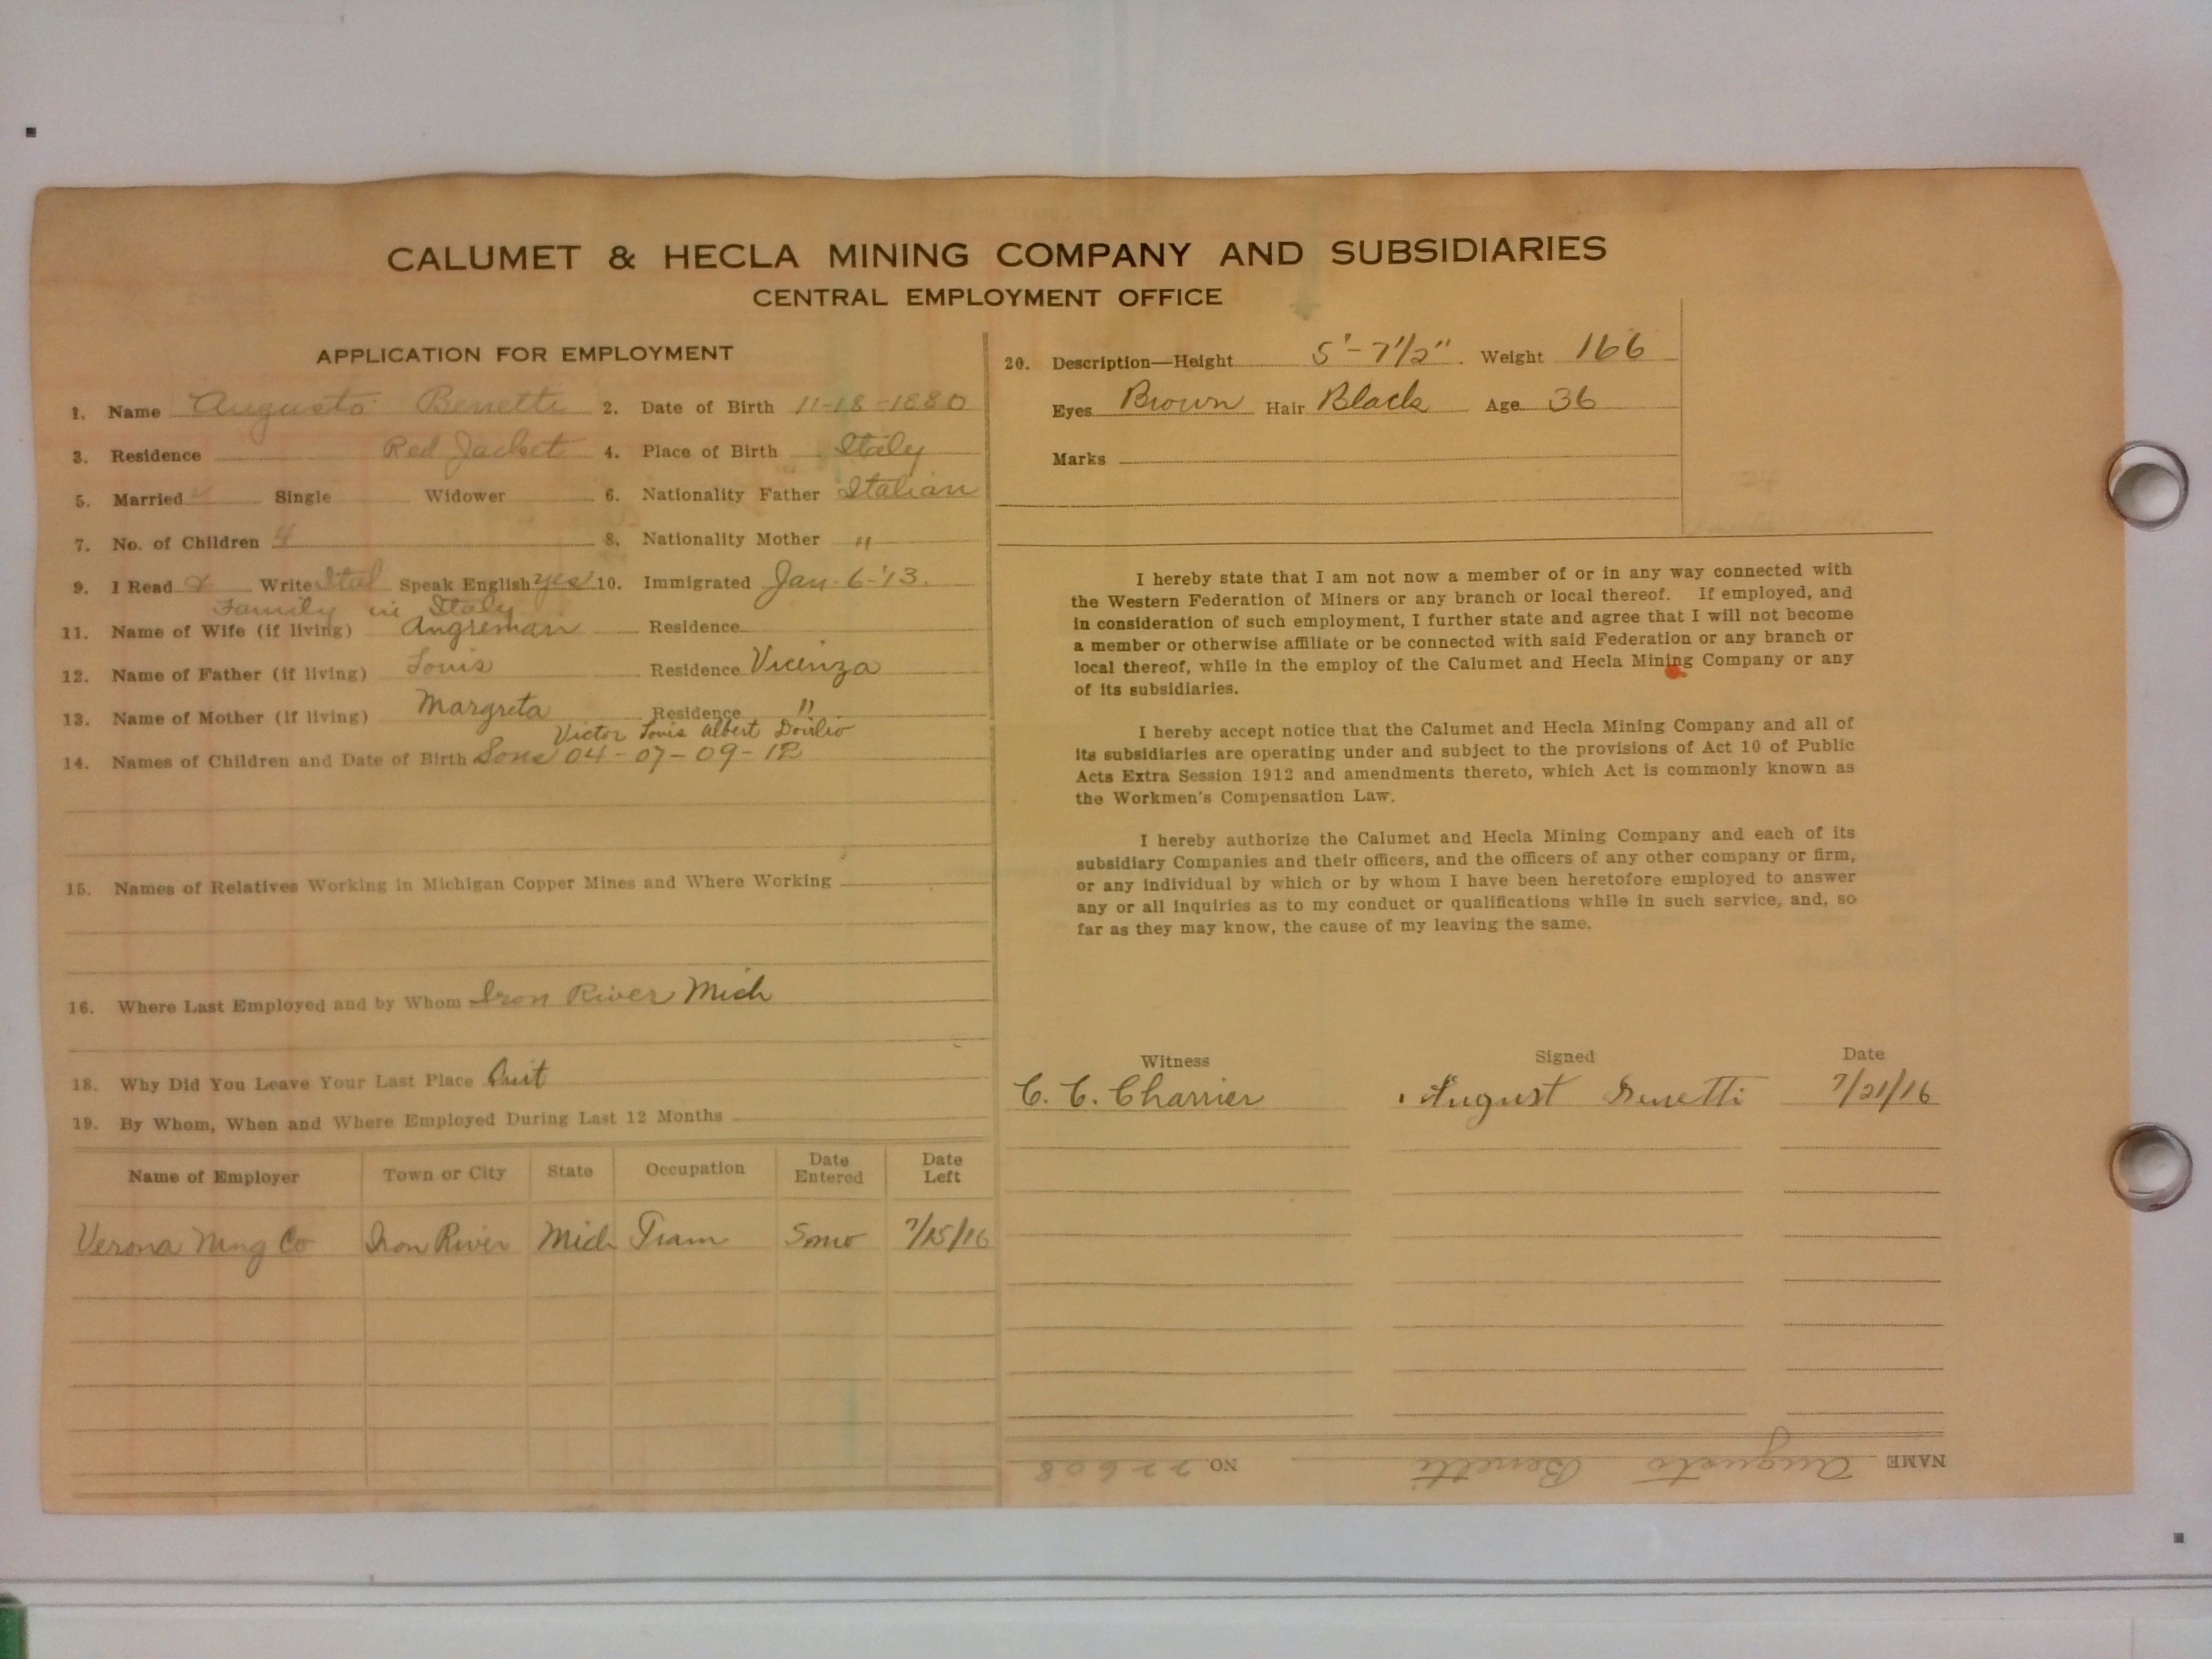 CALUMET & HECLA MINING COMPANY AND SUBSIDIARIES
CENTRAL EMPLOYMENT OFFICE
APPLICATION FOR EMPLOYMENT
1. Name Augusto Benetti 2. Date of Birth 11-18-1880
3. Residence Red Jacket 4. Place of Birth Italy
5. Married ✓ Single Widower 6. Nationality Father Italian
7. No. of Children 4 8. Nationality Mother "
9. I Read & Write Ital Speak English yes 10. Immigrated Jan. 6-'13.
Family in Italy
11. Name of Wife (if living) Angreman Residence
12. Name of Father (if living) Louis Residence Vicenza
13. Name of Mother (if living) Margreta Residence "
Victor Louis Albert
14. Names of Children and Date of Birth Sons 04-07-09-12
15. Names of Relatives Working in Michigan Copper Mines and Where Working
16. Where Last Employed and by Whom Iron River Mich
18. Why Did You Leave Your Last Place Quit
19. By Whom, When and Where Employed During Last 12 Months
Name of Employer Town or City State Occupation Date Entered Date Left
Verona Mng Co Iron River Mich Tram 7/15/16
20. Description—Height 5'-7 1/2" Weight 166
Eyes Brown Hair Black Age 36
Marks
I hereby state that I am not now a member of or in any way connected with
the Western Federation of Miners or any branch or local thereof. If employed, and
in consideration of such employment, I further state and agree that I will not become
a member or otherwise affiliate or be connected with said Federation or any branch or
local thereof, while in the employ of the Calumet and Hecla Mining Company or any
of its subsidiaries.
I hereby accept notice that the Calumet and Hecla Mining Company and all of
its subsidiaries are operating under and subject to the provisions of Act 10 of Public
Acts Extra Session 1912 and amendments thereto, which Act is commonly known as
the Workmen's Compensation Law.
I hereby authorize the Calumet and Hecla Mining Company and each of its
subsidiary Companies and their officers, and the officers of any other company or firm,
or any individual by which or by whom I have been heretofore employed to answer
any or all inquiries as to my conduct or qualifications while in such service, and, so
far as they may know, the cause of my leaving the same.
Witness Signed Date
C. C. Charrier August Benetti 7/21/16
NAME Augusto Benetti NO. 22608